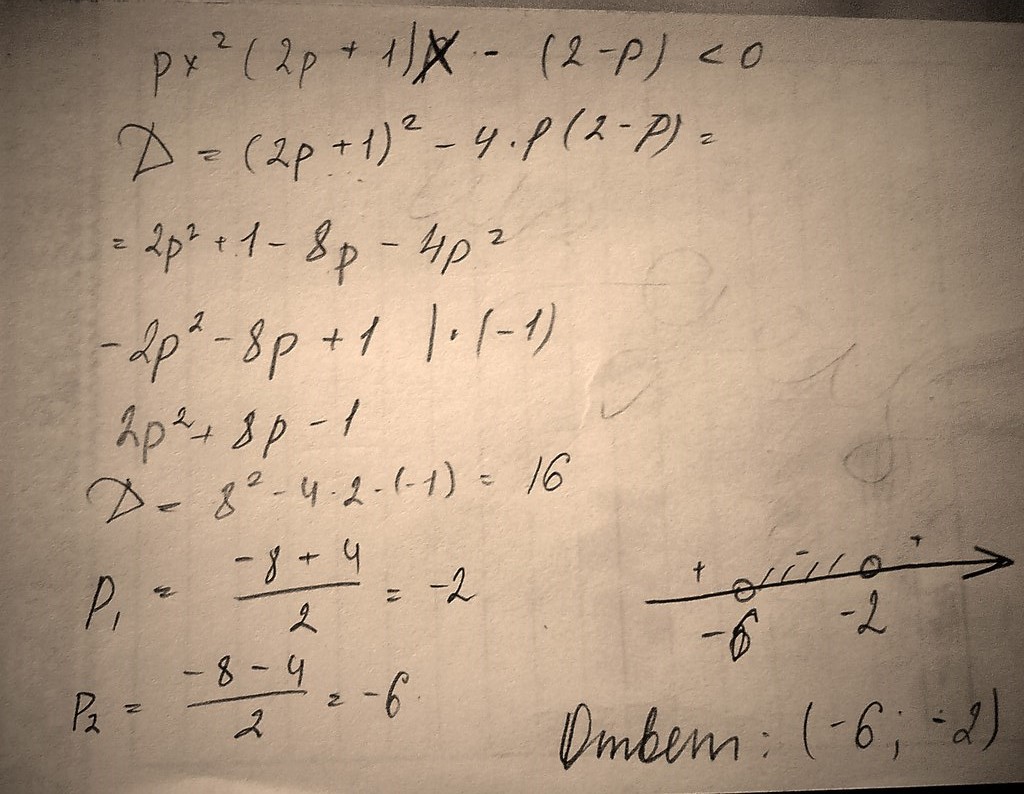 px² (2p + 1)x - (2-p) < 0
D = (2p+1)² - 4·p(2-p) =
= 2p² + 1 - 8p - 4p²
-2p² - 8p + 1 |·(-1)
2p² + 8p - 1
D = 8² - 4·2·(-1) = 16
P₁ = (-8 + 4)/2 = -2
+ - +
-6 -2
P₂ = (-8 - 4)/2 = -6
Ответ: (-6; -2)